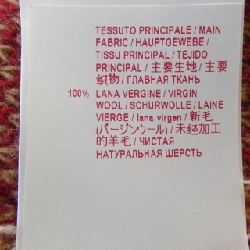 TESSUTO PRINCIPALE / MAIN
FABRIC / HAUPTGEWEBE /
TISSU PRINCIPAL / TEJIDO
PRINCIPAL / 主要生地 / 主要
织物 / ГЛАВНАЯ ТКАНЬ
100% LANA VERGINE / VIRGIN
WOOL / SCHURWOLLE / LAINE
VIERGE / lana virgen / 新毛
(バージンウール) / 未经加工
的羊毛 / ЧИСТАЯ
НАТУРАЛЬНАЯ ШЕРСТЬ